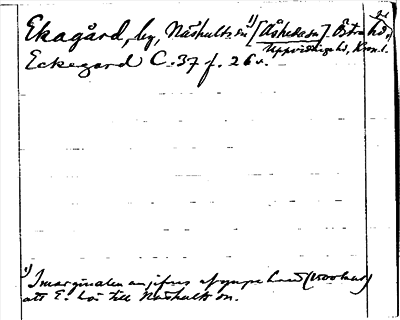 Ekagård, by, Näshults sn ¹) [Åsheda sn]. Östra hd,
Uppvidinge hd, Kron. l.
Eckegard C:37 f. 26 v.
¹) I marginalen angifves af gunpe hand (Vortand)
att E. hör till Näshults sn.